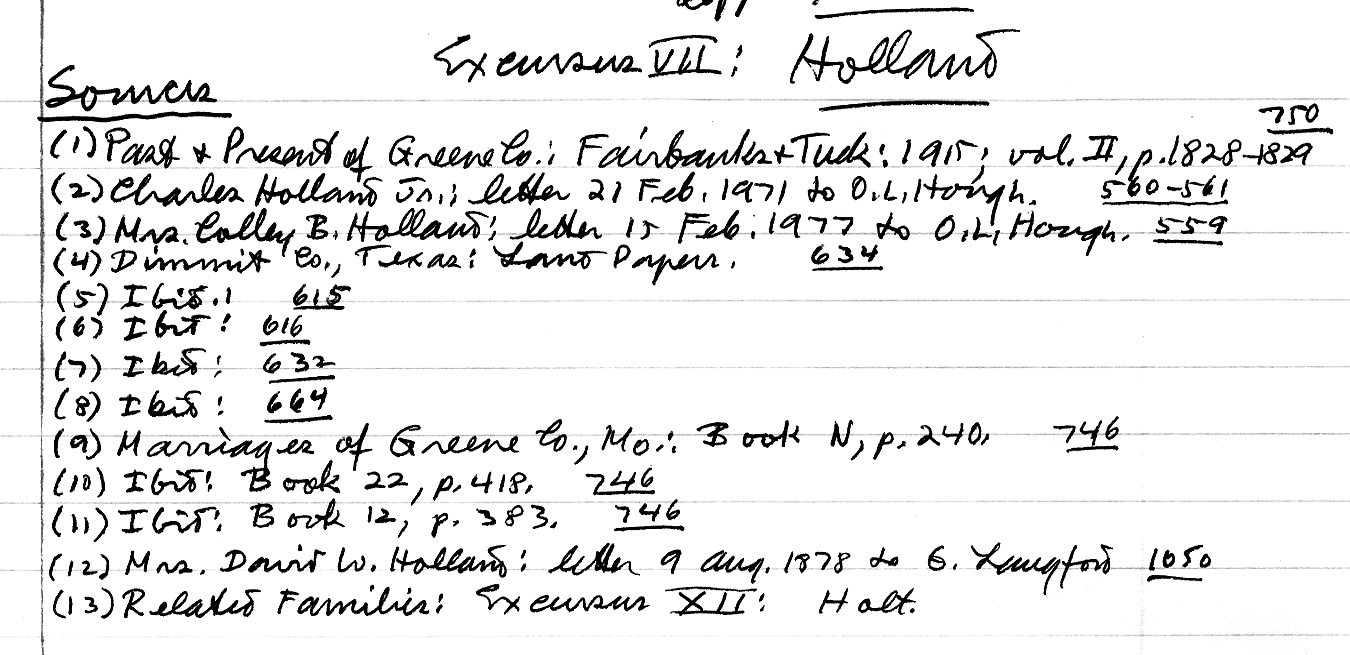 Excursus VII: Holland
Sources
750
(1) Past & Present of Greene Co.: Fairbanks & Tuck: 1915; vol. II, p. 1828-1829
(2) Charles Holland Jr.; letter 21 Feb. 1971 to O.L. Hough. 560-561
(3) Mrs. Colley B. Holland; letter 15 Feb. 1977 to O.L. Hough. 559
(4) Dimmit Co., Texas: Land Papers. 634
(5) Ibid.: 615
(6) Ibid: 616
(7) Ibid: 632
(8) Ibid: 664
(9) Marriages of Greene Co., Mo.: Book N, p. 240. 746
(10) Ibid: Book 22, p. 418. 746
(11) Ibid: Book 12, p. 383. 746
(12) Mrs. David W. Holland: letter 9 Aug. 1878 to G. Langford 1050
(13) Related Families: Excursus XII: Holt.